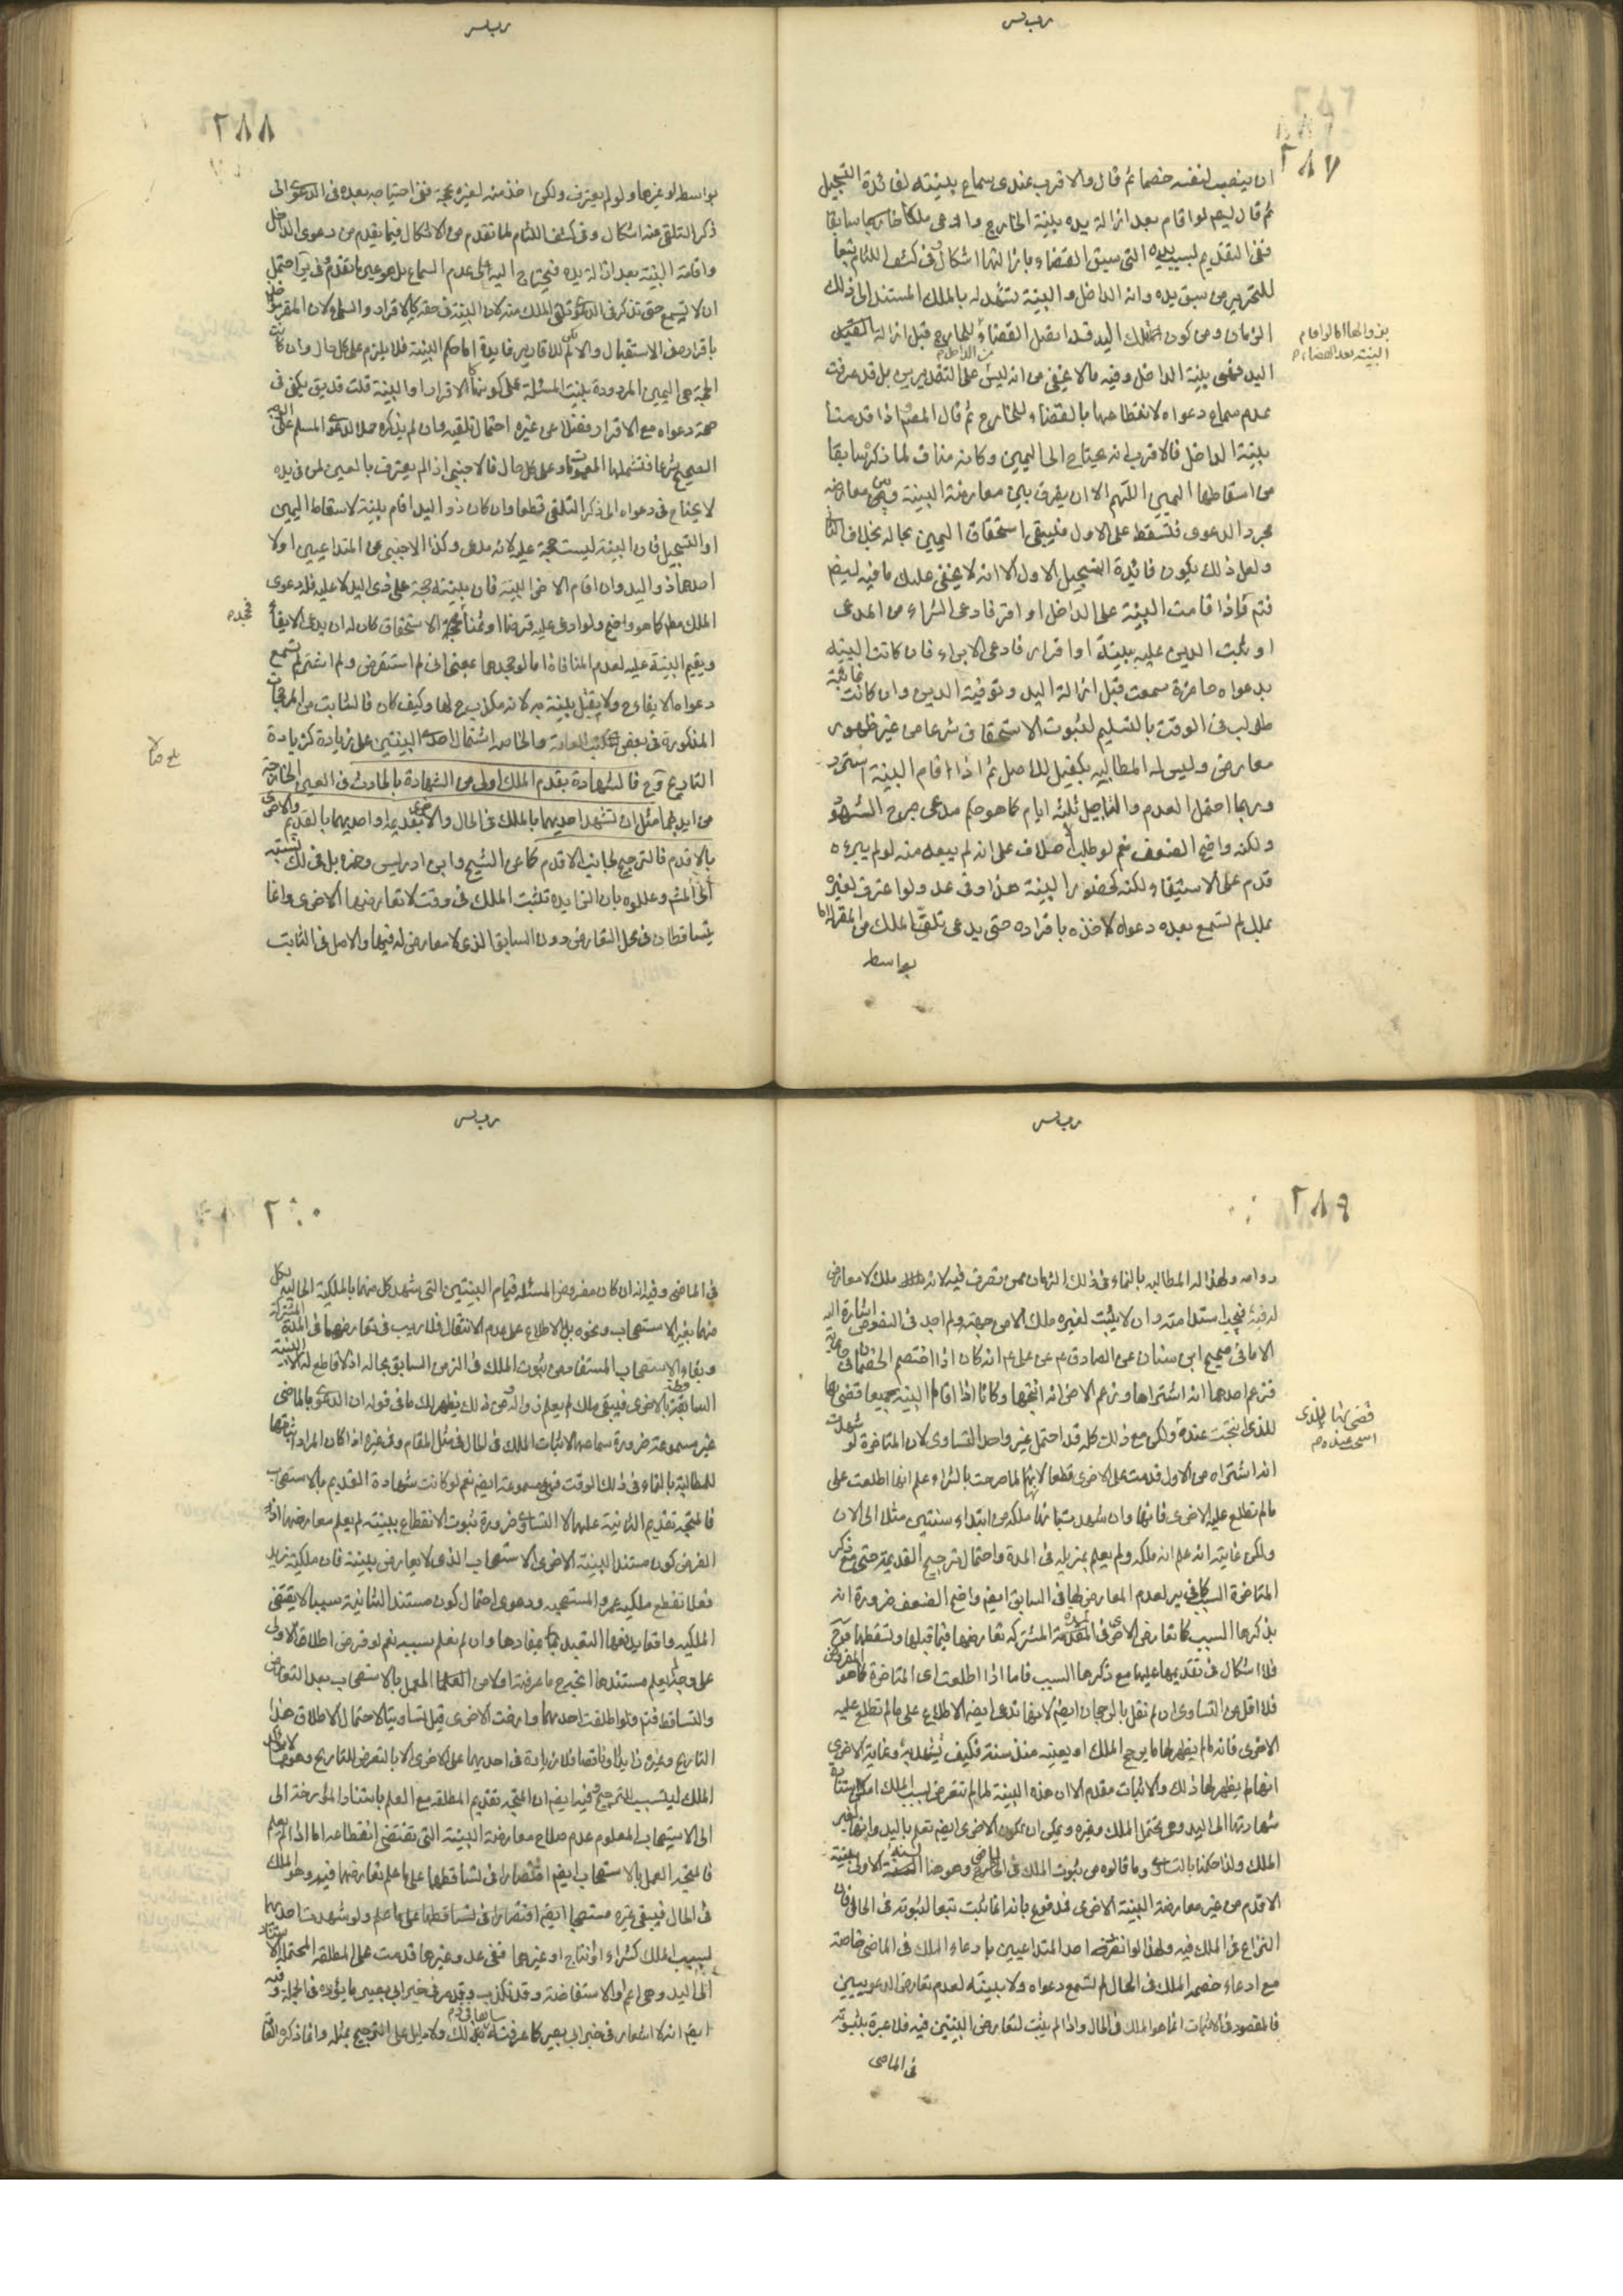 ٢٨٧
ان ينصب لنفسه خصما ثم قال والاقرب عندى سماع بينته لفائدة التسجيل
ثم قال ايضم لو اقام بعد ازالة يده ببينة الخارج وادعى ملكا سابقا
ففى التقديم لسبب يده التى سبق القضاء بازالتها اشكال وفى كشف اللثام تبعا
للتحرير من سبق يده وانه الداخل والبينة تشهد له بالملك المستند الى ذلك
الزمان ومن كون تلك اليد قد اتصل القضاء بزوالها اما لو اقام البينة بعد القضاء للخارج قبل ازالة
اليد فهى بينة الداخل وفيه ما لا يخفى من انه ليس على التقديرين بل قد عرفت
عدم سماع دعواه لانقطاعها بالقضاء للخارج ثم قال المصنف اذا قدمنا
بينة الداخل فالاقرب انه يحتاج الى اليمين وكانه مناف لما ذكره سابقا
من اسقاطها اليمين اللهم الا ان يفرق بين معارضة البينة وبين معارضة
مجرد الدعوى فتسقط على الاول فيبقى استحقاق اليمين بحاله بخلاف الثانى
ولعل ذلك يكون فائدة التسجيل الاول الا انه لا يخفى عليك ما فيه ايضم
فتم فاذا قامت البينة على الداخل او اقر فادعى الشراء من المدعى
او ثبت الدين عليه ببينة او اقرار فادعى الابراء فان كانت البينة
بدعواه حاضرة سمعت قبل ازالة اليد وتوفية الدين وان كانت غائبة
طولب فى الوقت بالتسليم لثبوت الاستحقاق شرعا من غير ظهور
معارض وليس له المطالبة بكفيل للاصل ثم اذا اقام البينة استرد
وربما احتمل العدم والتاجيل ثلثة ايام كما هو حكم مدعى جرح الشهود
ولكنه واضح الضعف نعم لو طلب احلاف على انه لم يبعه منه او لم يبرءه
قدم على الاستيفاء ولكنه كحضور البينة هذا وفى عد ولو اعترف لغيره
بملك لم تسمع بعده دعواه لاخذه باقراره حتى يدعى تلقى الملك من المقر له اما
بواسطه
٢٨٨
بواسطه او غيرها ولو لم يعترف ولكن اخذ منه لغيره بحجة ففى احتياجه بعده فى الدعوى الى
ذكر التلقى عنه اشكال وفى كشف اللثام لما تقدم من الاشكال فيما تقدم من دعوى الداخل
واقامة البينة بعد ازالة يده فيحتاج اليه اى عدم السماع بل هو عين ما تقدم وفى يق احتمل
ان لا يسمع حتى تذكر فى الدعوى تلقى الملك منه لان البينة فى حقه كالاقرار والسماع لان المقر مؤاخذ
باقراره فى الاستقبال والا لم يكن للاقارير فايدة اما حكم البينة فلا يلزم على كل حال وان كانت
الحجة هى اليمين المردودة بنيت المسئلة على كونها كالاقرار او البينة قلت قد يق يكفى فى
صحة دعواه مع الاقرار فضلا عن غيره احتمال تلقيه وان لم يذكره حملا لدعوى المسلم على الوجه
الصحيح شرعا فتشملها العمومات وعلى كل حال فالاجنبى اذ لم يعترف بالعين لمن فى يده
لا يحتاج فى دعواه الى ذكر التلقى قطعا وان كان ذو اليد اقام بينة لاسقاط اليمين
او التسجيل فان البينة ليست حجة عليه لانه مدعى وكذا الاجنبى من المتداعيين اولا
احدهما ذو اليد وان اقام الاخر البينة فان بينته حجة على ذى اليد لا عليه فله دعوى
الملك مطم كما هو واضح ولو ادعى عليه قرضا او ثمنا فجحده الاستحقاق كان له ان يدعى الايفاء
ويقيم البينة عليه لعدم المنافاة اما لو جحدهما بمعنى انى لم استقرض ولم اشتر لم تسمع
دعواه الايفاء ح ولا يقبل بينته به لانه مكذب ح لها وكيف كان فالثابت من المرجحات
المذكورة فى بعض كتب العامة والخاصة اشتمال احدى البينتين على زيادة كزيادة
التاريخ وح فالشهادة بقدم الملك اولى من الشهادة بالحادث فى العين الخارجة
من ايديهما مثل ان تشهد احديهما بالملك فى الحال والاخرى بقديمه او احديهما بالقديم والاخرى
بالاقدم فالترجيح لجانب الاقدم كما عن الشيخ وابن ادريس وحمزة بل فى لك نسبته
الى المشم وعللوه بان الزايدة تثبت الملك فى وقت لا تعارضها الاخرى وانما
يتساقطان فى محل التعارض دون السابق الذى لا معارض له فيها والاصل فى الثابت
٢٨٩
دوامه ولهذا له المطالبه بالنماء فى ذلك الزمان ممن تصرف فيه لانه ملك لا معارض
له فيه فيجب استدامته وان لا يثبت لغيره ملك الا من جهته ولم اجد فى النصوص اشارة اليه
الا ما فى صحيح ابن سنان عن الصادق ع عن على ع انه كان اذا اختصم الخصمان فى جارية
فزعم احدهما انه اشتراها وزعم الاخر انه انتجها وكانا اذا اقاما البينة جميعا قضى بها
للذى انتجت عنده ولكن مع ذلك كله قد احتمل غير واحد التساوى لان المتاخرة لو شهدت
انه اشتراه من الاول قدمت على الاخرى قطعا لانها لما صرحت بالشراء علم انها اطلعت على
ما لم تطلع عليه الاخرى فانها وان شهدت بانها ملكه من ابتداء سنتين مثلا الى الان
ولكن غايته انه علم انه ملكه ولم يعلم بمزيله فى المدة واحتمال ترجيح القديمة حتى مع ذكر
المتاخرة السبب كما فى ير لعدم المعارض لها فى السابق ايضم واضح الضعف ضرورة انه
بذكرها السبب كما تعارض الاخرى فى المدة المشتركه تعارضها فيما قبلها وتسقطها وح
فلا اشكال فى تقديمها عليها مع ذكرها السبب فاما اذا اطلعت اى المتاخرة كما هو المفروض
فلا اقل من التساوى ان لم نقل بالرجحان ايضم لانها تدعى ايضم الاطلاع على ما لم تطلع عليه
الاخرى فانه لم يظهر لها ما يوجب الملك او يعينه منذ سنة فكيف تشهد به وغاية الاخرى
انها لم يظهر لها ذلك والاثبات مقدم الا ان هذه البينة لما لم تتعرض لسبب الملك امكن استناد
شهادتها الى اليد وهى تحتمل الملك وغيره ويمكن ان يكون الاخرى ايضم تعلم باليد وانها لغير
الملك ولذا حكمنا بالتساوى وما قالوه من ثبوت الملك فى الماضى وهو هنا السنة الاولى ببينة
الاقدم من غير معارضة البينة الاخرى فمدفوع بانه انما يثبت تبعا لثبوته فى الحال فان
النزاع فى الملك فيه ولهذا لو انفرد احد المتداعيين بادعاء الملك فى الماضى خاصة
مع ادعاء خصمه الملك فى الحال لم تسمع دعواه ولا بينته لعدم تعارض الدعويين
فالمقصود فى الاثبات انما هو الملك فى الحال واذا لم يثبت لتعارض البينتين فيه فلا عبرة بثبوته
فى الماضى
قضى بها للذى
انتجت عنده
٢٩٠
فى الماضى وفيه انه ان كان مفروض المسئلة قيام البينتين التى شهد كل منهما بالملكية الحالية لكل
منهما بغير الاستصحاب ونحوه بل بالاطلاع على عدم الانتقال فلا ريب فى تعارضهما فى المدة المشتركة
وبقاء الاستصحاب المستفاد من ثبوت الملك فى الزمن السابق بحاله اذ لا قاطع له الا البينة
السابقة بالاخرى فيبقى ملك لم يعلم زواله ومن ذلك يظهر لك ما فى قوله ان الدعوى بالماضى
غير مسموعة ضرورة سماعها لاثبات الملك فى الحال فى مثل المقام وفى غيره اذا كان المراد اثباتها
للمطالبة بالنماء فى ذلك الوقت فهى مسموعة ايضم نعم لو كانت شهادة القديم بالاستصحاب
فالمتجه تقديم الثانية عليها لا التساوى ضرورة ثبوت الانقطاع ببينة لم يعلم معارضها اذ
الفرض كون مستند البينة الاخرى الاستصحاب الذى لا يعارض ببينة فان ملكية زيد
فعلا تقطع ملكيه عمرو المستصحبه ودعوى احتمال كون مستند الثانية سببا لا يقتضى
الملكيه واقعا يدفعها التعبد بمفادها وان لم نعلم سببه نعم لو فرض اطلاق الاولى
على وجه لم يعلم مستندها اتجه ح ما عرفته اولا من العمل بالاستصحاب بعد التعارض
والتساقط فتم ولو اطلقت احديهما وارخت الاخرى قيل تساويتا لاحتمال الاطلاق هذا
التاريخ وغيره زايدا وناقصا فلا زيادة فى احديهما على الاخرى الا بالتعرض للتاريخ وهو مما
الملك ليس سبب للترجيح وفيه ايضم ان المتجه تقديم المطلقه مع العلم باستناد المؤرخة الى
الى الاستصحاب المعلوم عدم صلاح معارضة البينة التى تقتضى انقطاعه اما اذا لم يعلم
فالمتجه العمل بالاستصحاب ايضم اقتصارا فى تساقطهما على ما علم تعارضهما فيه وهو الملك
فى الحال فيبقى غيره مستصحبا ايضم اقتصارا فى تساقطهما على ما علم ولو شهدت احديهما
بسبب الملك كشراء او نتاج او غيرهما ففى عد وغيرها قدمت على المطلقه المحتملة لاستناد
الى اليد وهى اعم والاستفاضة وقد تكذب وقد مر فى خبر ابى بصير ما يؤيده فى الجملة وفيه
ايضم انه لا اشعار فى خبر ابى بصير كما عرفته سابقا بذلك ولا دليل على الترجيح بمثله وانما ذكره العامة